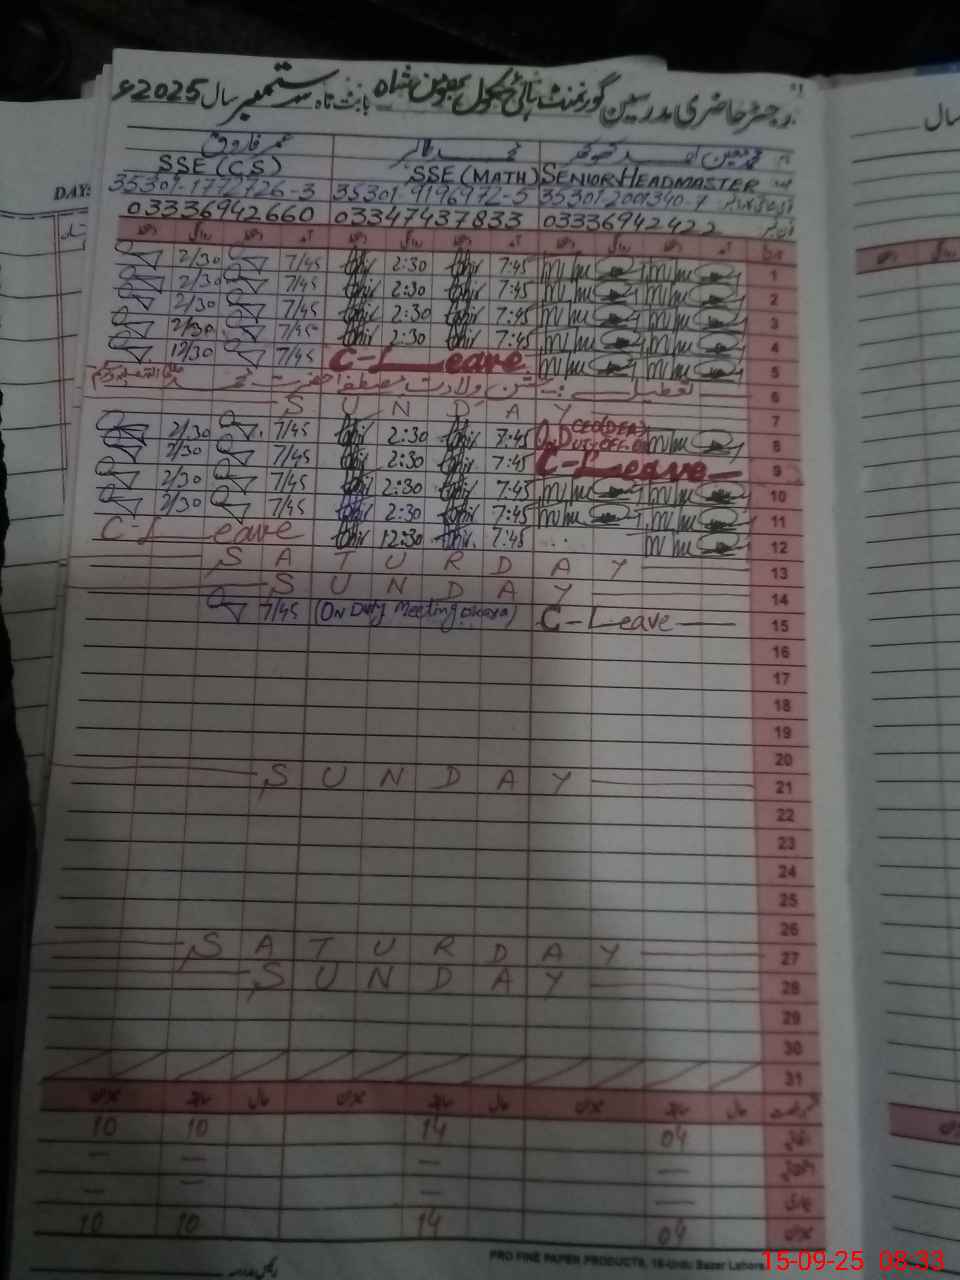 رجسٹر حاضری مدرسین گورنمنٹ ہائی سکول بھومن شاہ بابت ماہ ستمبر سال 2025ء
عمر فاروق محمد طاہر
SSE (CS) SSE (MATH) SENIOR HEADMASTER
35301-1772726-3 35301-9196972-5 35301-2001340-7
03336942660 03347437833 03336942422
2/30 7/45 2:30 7:45 1
2/30 7/45 2:30 7:45 2
2/30 7/45 2:30 7:45 3
2/30 7/45 2:30 7:45 4
12/30 7/45 C-Leave 5
تعطیل جشن ولادت مصطفیٰ حضرت محمد 6
SUNDAY 7
2/30 7/45 2:30 7:45 O.D CEO(DEA) 8
2/30 7/45 2:30 7:45 C-Leave 9
2/30 7/45 2:30 7:45 10
2/30 7/45 2:30 7:45 11
C-Leave 12:30 7:45 12
SATURDAY 13
SUNDAY 14
7/45 (On Duty Meeting okara) C-Leave 15
16
17
18
19
20
SUNDAY 21
22
23
24
25
26
SATURDAY 27
SUNDAY 28
29
30
31
میزان سابقہ حال میزان سابقہ حال میزان سابقہ حال
10 10 14 04
— — —
— — —
10 10 14 04
PRO FINE PAPER PRODUCTS, 16-Urdu Bazar Lahore
15-09-25 08:33
DAY:
سال